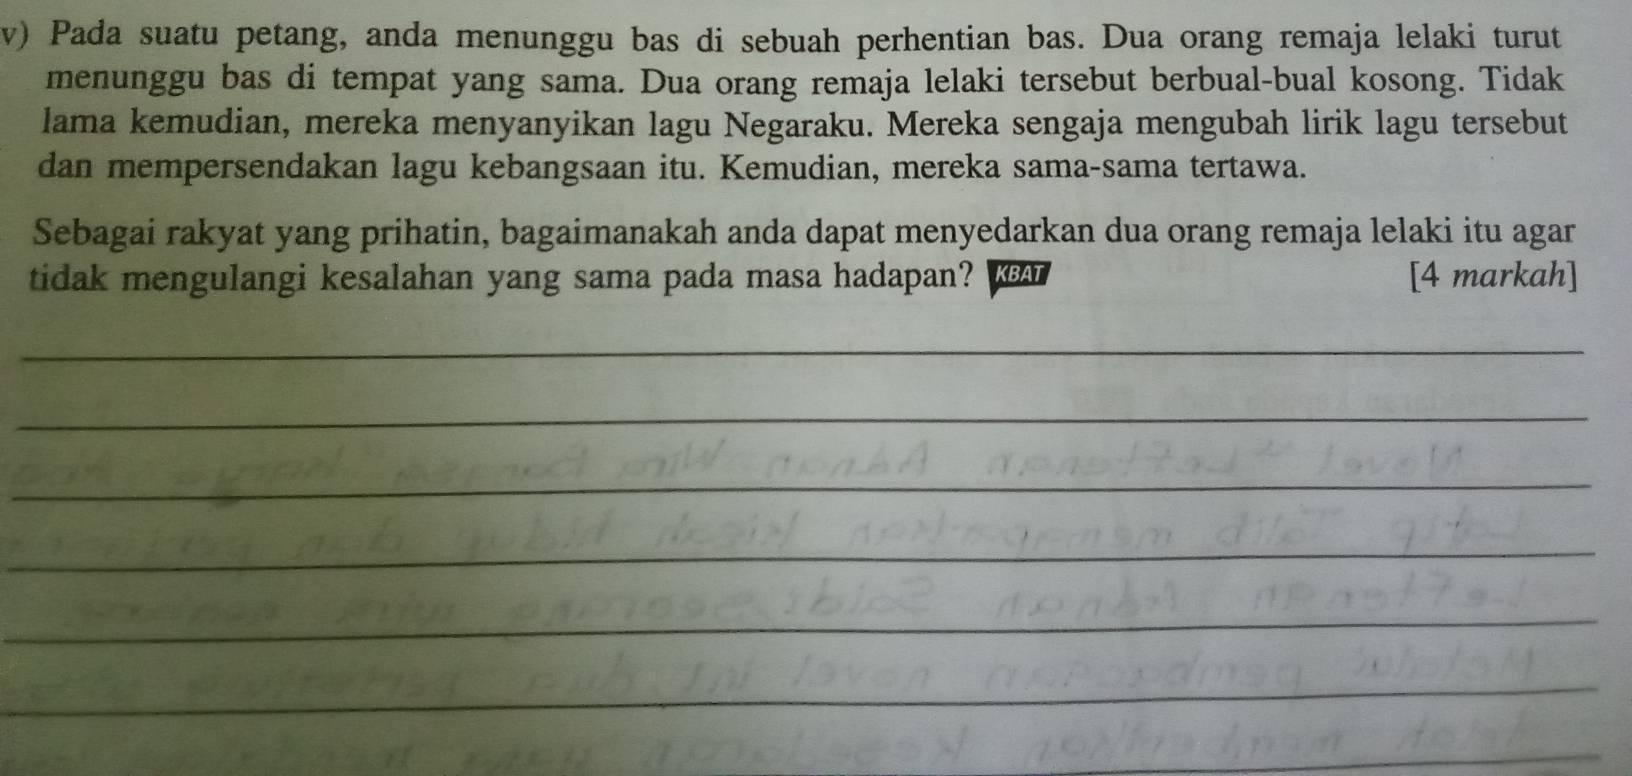 v) Pada suatu petang, anda menunggu bas di sebuah perhentian bas. Dua orang remaja lelaki turut
menunggu bas di tempat yang sama. Dua orang remaja lelaki tersebut berbual-bual kosong. Tidak
lama kemudian, mereka menyanyikan lagu Negaraku. Mereka sengaja mengubah lirik lagu tersebut
dan mempersendakan lagu kebangsaan itu. Kemudian, mereka sama-sama tertawa.
Sebagai rakyat yang prihatin, bagaimanakah anda dapat menyedarkan dua orang remaja lelaki itu agar
tidak mengulangi kesalahan yang sama pada masa hadapan? KBAT [4 markah]